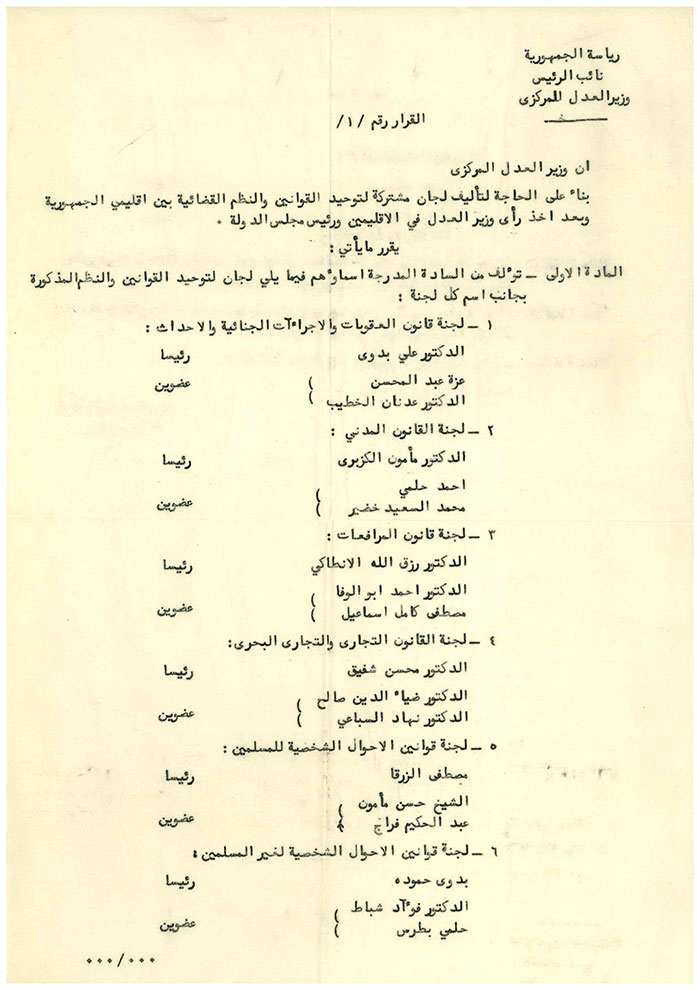 رياسة الجمهورية
نائب الرئيس
وزير العدل المركزى
القرار رقم /١/
ان وزير العدل المركزى
بناء على الحاجة لتأليف لجان مشتركة لتوحيد القوانين والنظم القضائية بين اقليمي الجمهورية
وبعد اخذ رأى وزير العدل في الاقليمين ورئيس مجلس الدولة .
يقرر مايأتي :
المادة الاولى – توءلف من السادة المدرجة اسماوءهم فيما يلي لجان لتوحيد القوانين والنظم المذكورة
بجانب اسم كل لجنة :
١ – لجنة قانون العقوبات والاجراءآت الجنائية والاحداث :
الدكتور علي بدوى رئيسا
عزة عبد المحسن
الدكتور عدنان الخطيب عضوين
٢ – لجنة القانون المدني :
الدكتور مأمون الكزبرى رئيسا
احمد حلمي
محمد السعيد خضير عضوين
٣ – لجنة قانون المرافعات :
الدكتور رزق الله الانطاكي رئيسا
الدكتور احمد ابو الوفا
مصطفى كامل اسماعيل عضوين
٤ – لجنة القانون التجارى والتجارى البحرى :
الدكتور محسن شفيق رئيسا
الدكتور ضياء الدين صالح
الدكتور نهاد السباعي عضوين
٥ – لجنة قوانين الاحوال الشخصية للمسلمين :
مصطفى الزرقا رئيسا
الشيخ حسن مأمون
عبد الحكيم فراج عضوين
٦ – لجنة قوانين الاحوال الشخصية لغير المسلمين :
بدوى حموده رئيسا
الدكتور فوءآد شباط
حلمي بطرس عضوين
٠٠٠/٠٠٠